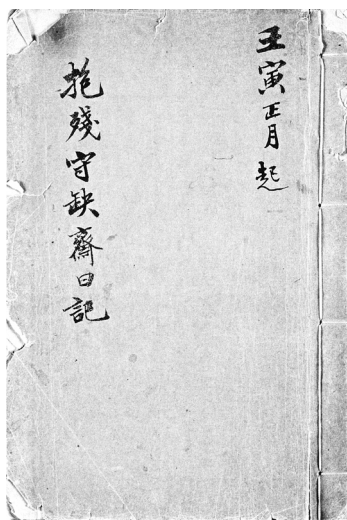 壬寅正月起
抱殘守缺齋日記